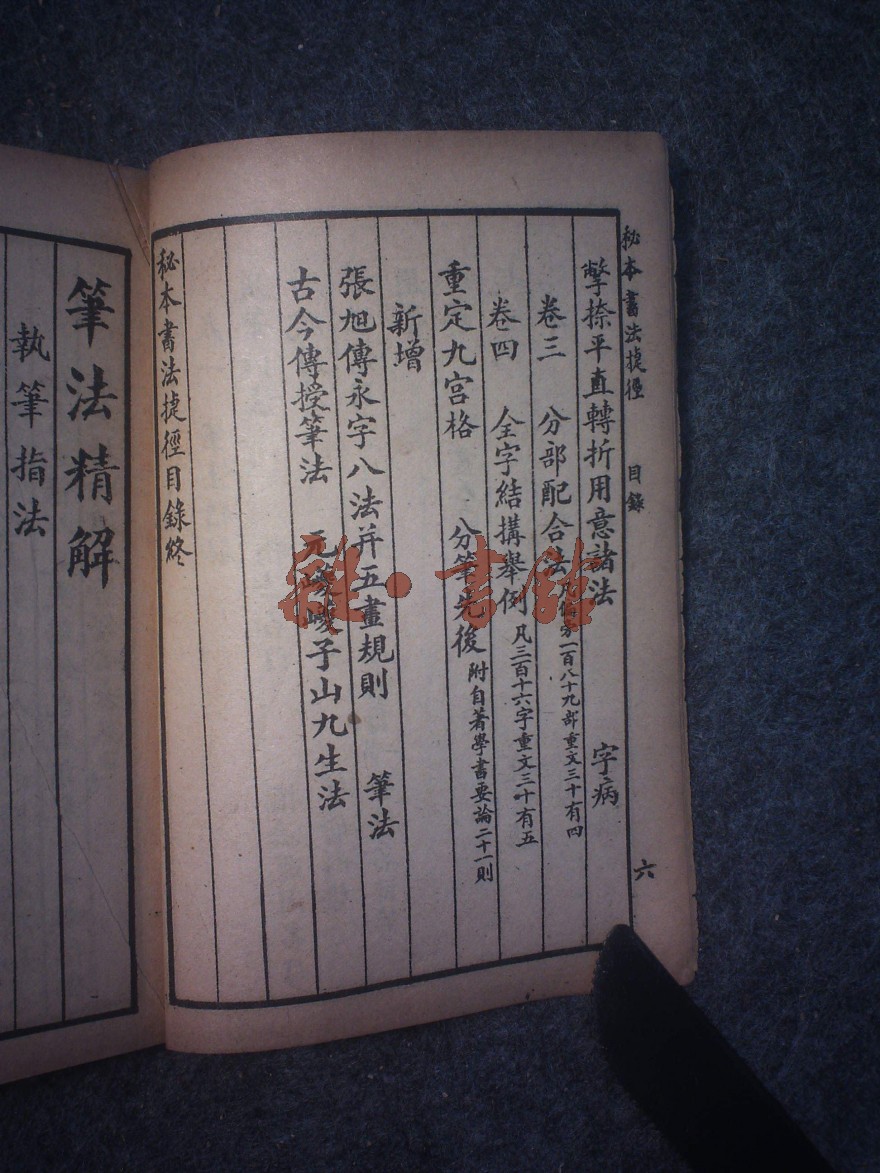 秘本書法捷徑 目錄 六
撆捺平直轉折用意諸法 字病
卷三 分部配合法 凡偏旁一百八十九部重文三十有四
卷四 全字結搆舉例 凡三百十六字重文三十有五
重定九宮格 分筆先後 附自著學書要論二十一則
新增
張旭傳永字八法并五畫規則 筆法
古今傳授筆法 元巙巙子山九生法
秘本書法捷徑目錄終
筆法精解
執筆指法
雜·書館